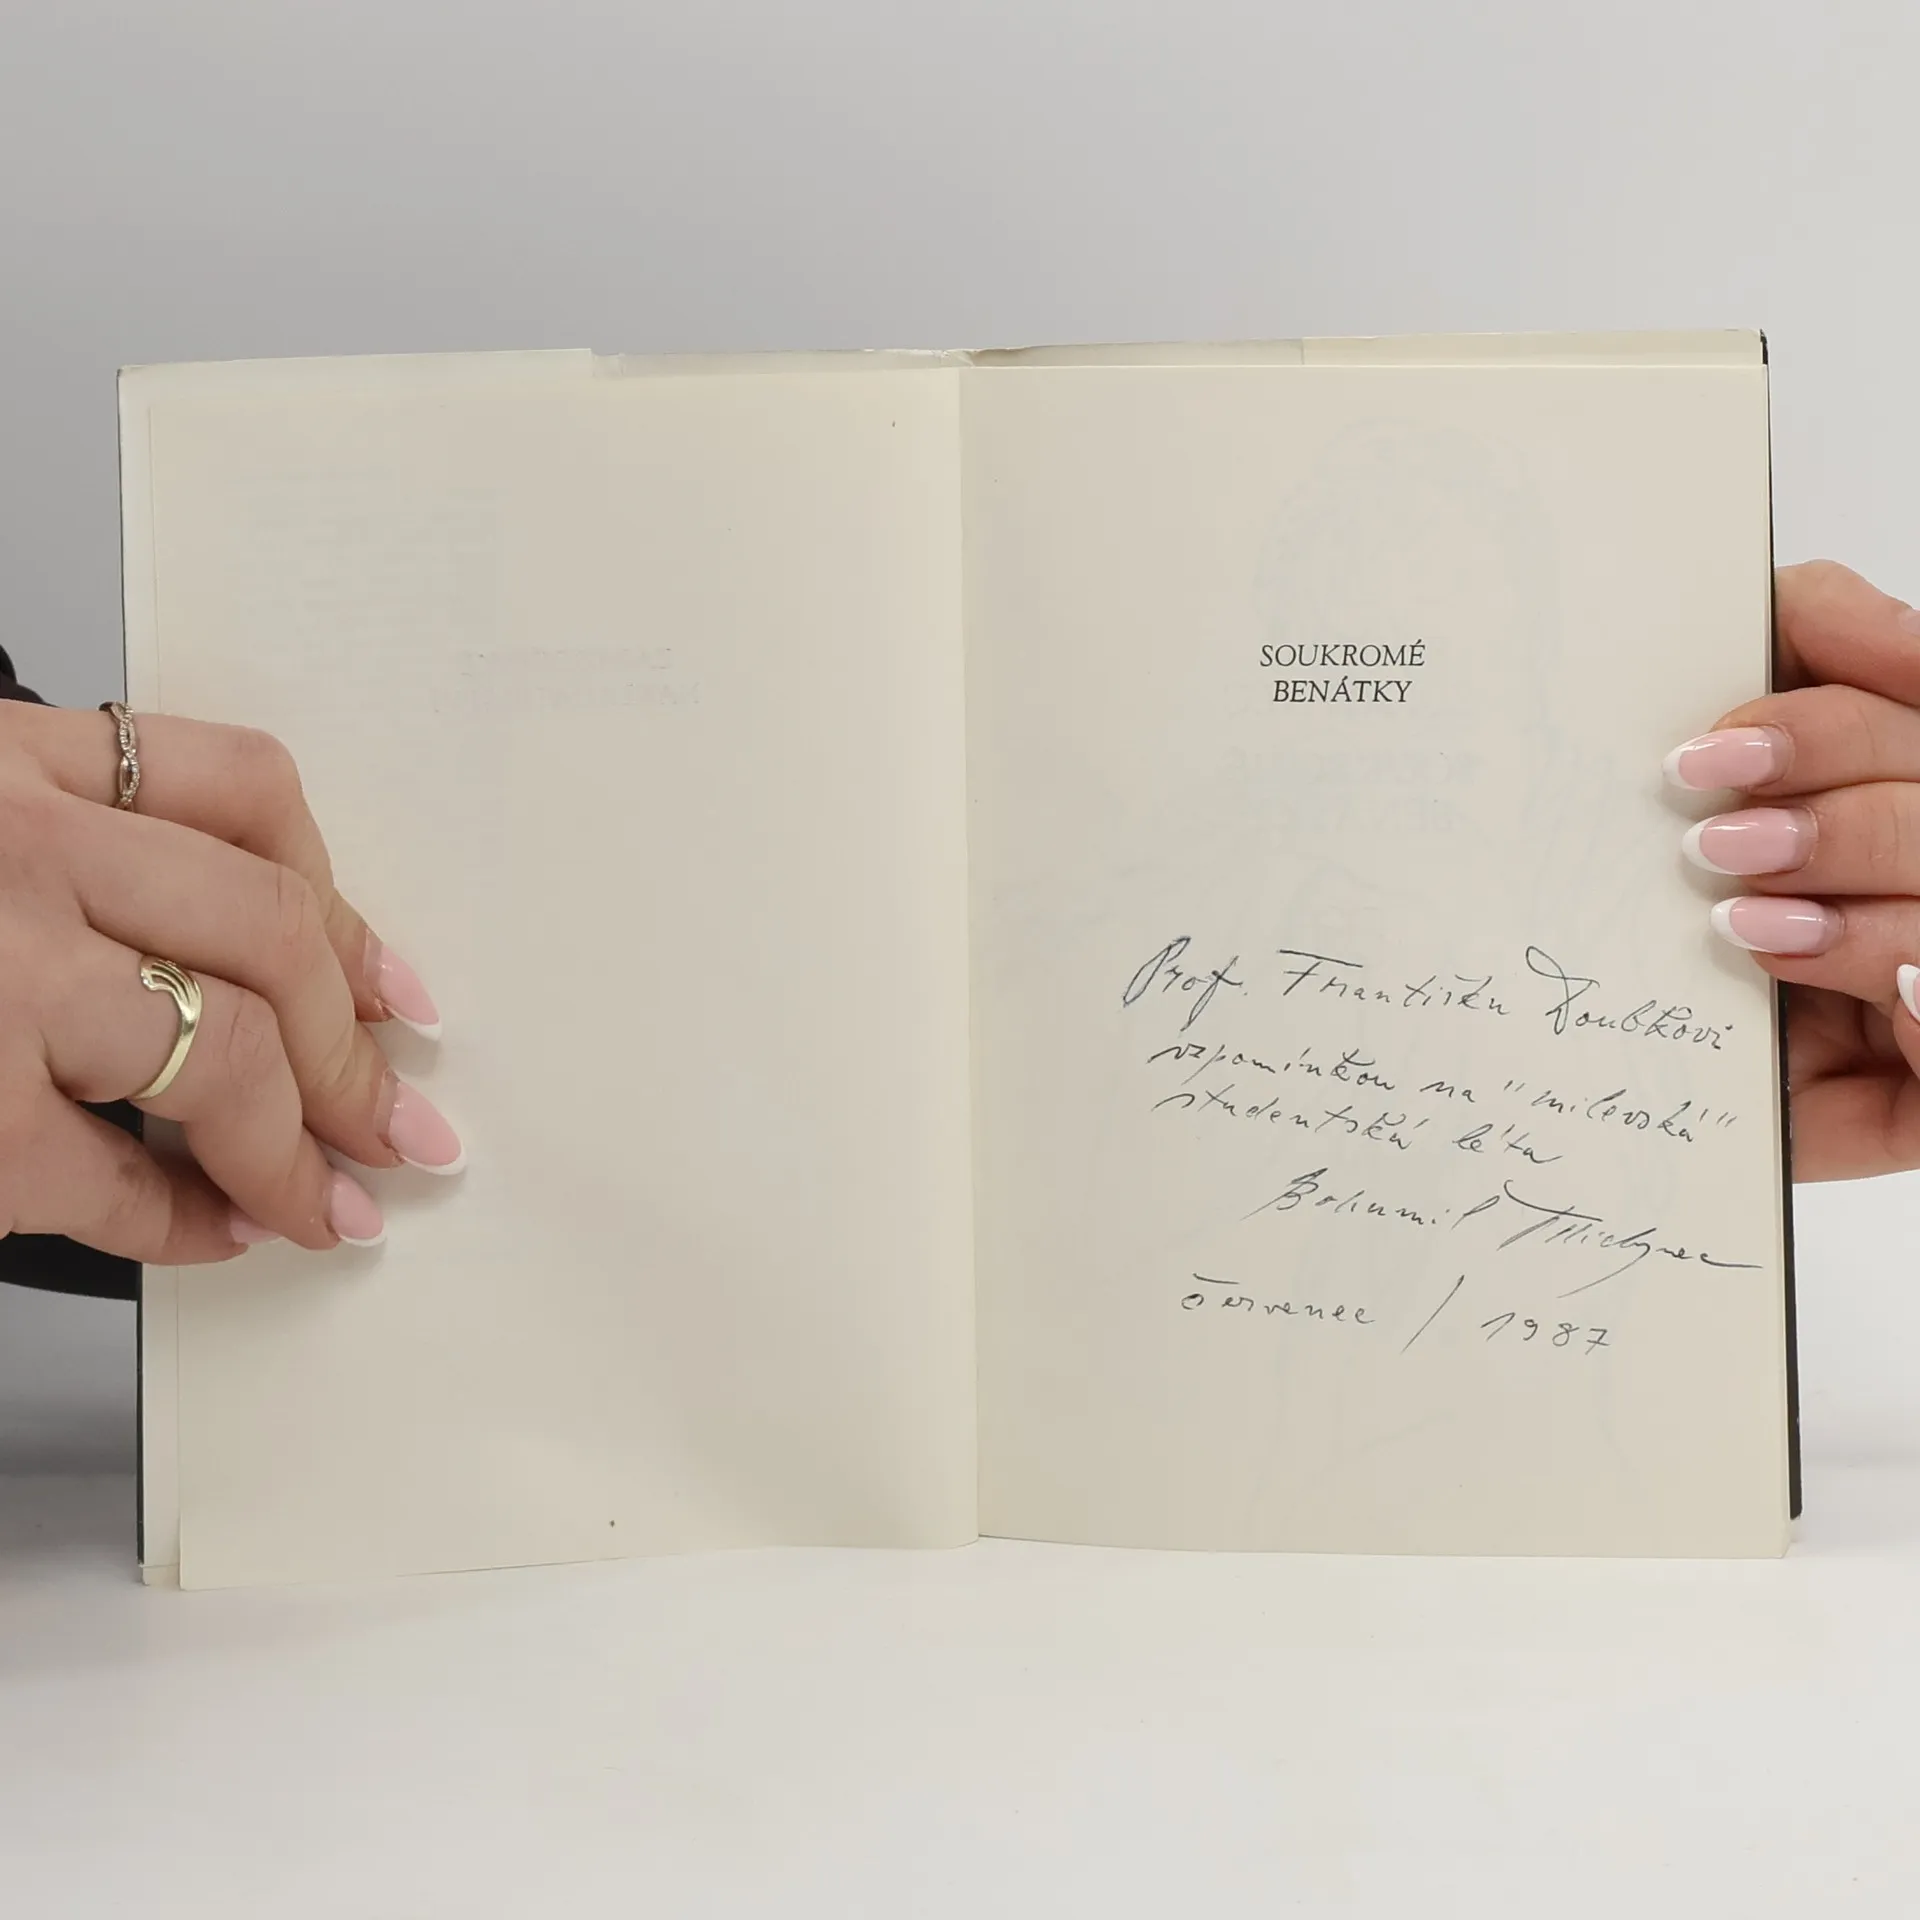 SOUKROMÉ
BENÁTKY
Prof. Františku Doubkovi
vzpomínkou na "milevská"
studentská léta
Bohumil
červenec / 1987